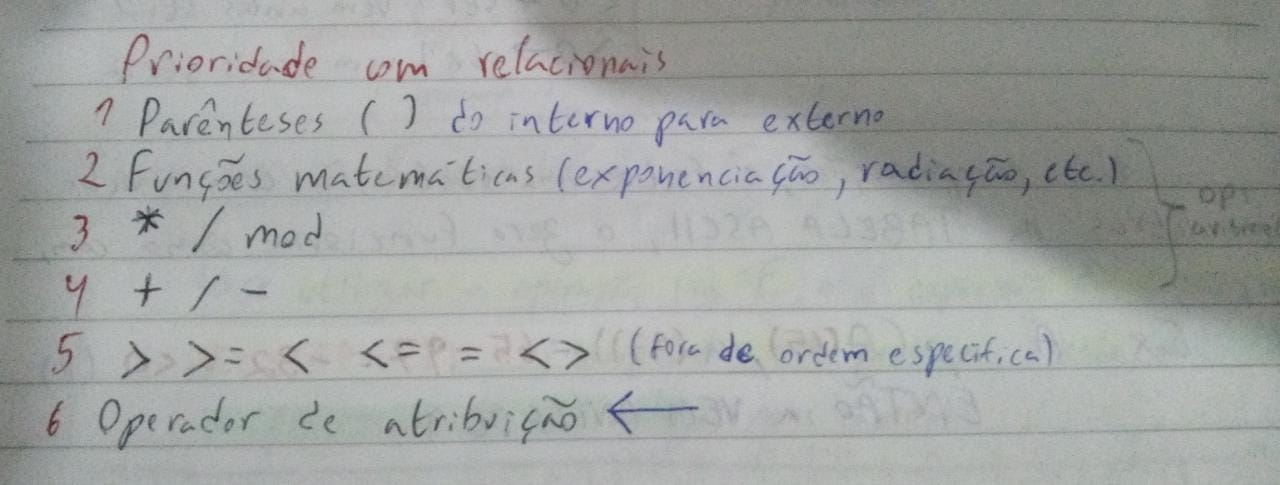 Prioridade com relacionais
1 Parênteses ( ) do interno para externo
2 Funções matemáticas (exponenciação, radiação, etc.)
3 * / mod
4 + / -
5 > >= < <= = <> (fora de ordem específica)
6 Operador de atribuição ←
op.